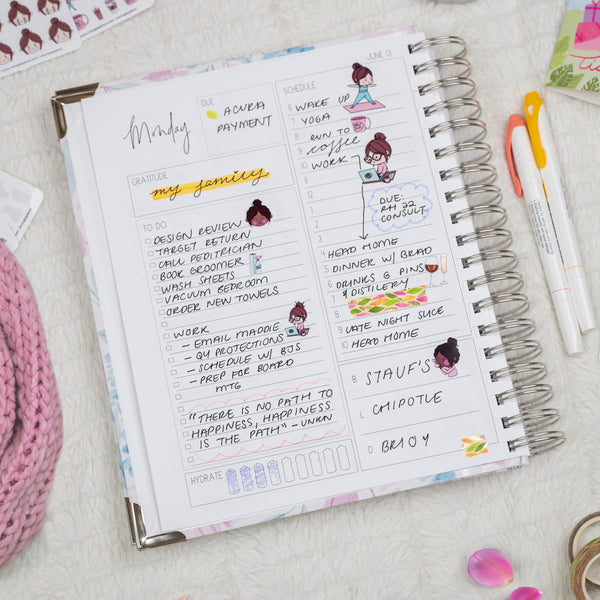 JUNE 13
Monday
DUE
ACURA
PAYMENT
GRATITUDE
my family
TO DO
DESIGN REVIEW
TARGET RETURN
CALL PEDITRICIAN
BOOK GROOMER
WASH SHEETS
VACUUM BEDROOM
ORDER NEW TOWELS
WORK
- EMAIL MADDIE
- Q4 PROJECTIONS
- SCHEDULE W/ BJS
- PREP FOR BOARD
MTG
"THERE IS NO PATH TO
HAPPINESS, HAPPINESS
IS THE PATH" - UNKN
HYDRATE
SCHEDULE
6 WAKE UP
7 YOGA
8 RUN TO
9 coffee
10 WORK
12
DUE:
RH 22
CONSULT
2
3
HEAD HOME
5 DINNER W/ BRAD
6 DRINKS @ PINS
7 & DISTILERY!
8
9 LATE NIGHT SLICE
10 HEAD HOME
B STAUF'S
L CHIPOTLE
D BRIOY